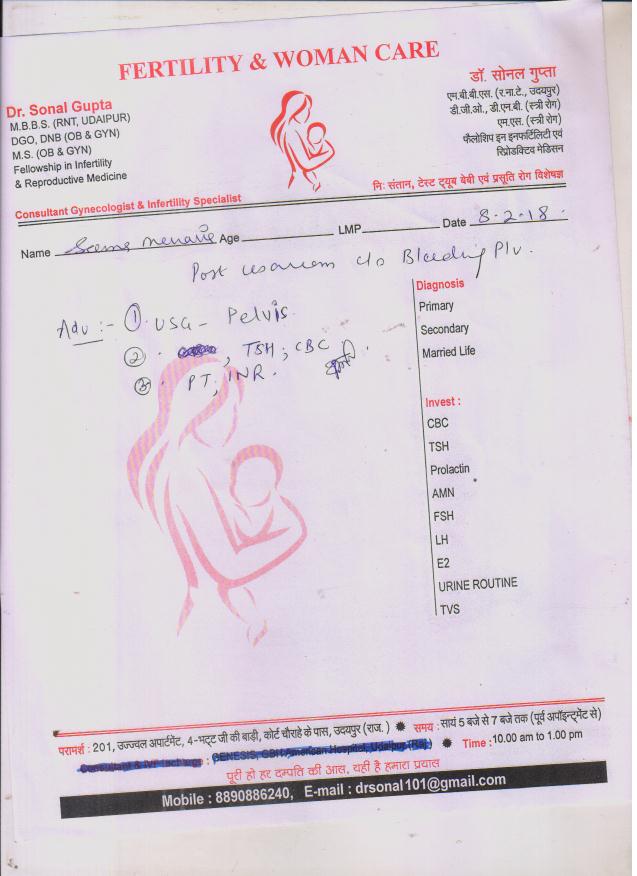 FERTILITY & WOMAN CARE
Dr. Sonal Gupta
M.B.B.S. (RNT, UDAIPUR)
DGO, DNB (OB & GYN)
M.S. (OB & GYN)
Fellowship in Infertility
& Reproductive Medicine
Consultant Gynecologist & Infertility Specialist
डॉ. सोनल गुप्ता
एम.बी.बी.एस. (र.ना.टे., उदयपुर)
डी.जी.ओ., डी.एन.बी. (स्त्री रोग)
एम.एस. (स्त्री रोग)
फैलोशिप इन इनफर्टिलिटी एवं
रिप्रोडक्टिव मेडिसन
नि: संतान, टेस्ट ट्यूब बेबी एवं प्रसूति रोग विशेषज्ञ
Name Age LMP Date 8-2-18
Post c/o Bleeding P/V.
Adv :- ① USG - Pelvis
② , TSH ; CBC
③ PT, INR.
Diagnosis
Primary
Secondary
Married Life
Invest :
CBC
TSH
Prolactin
AMN
FSH
LH
E2
URINE ROUTINE
TVS
परामर्श : 201, उज्ज्वल अपार्टमेंट, 4-भट्ट जी की बाड़ी, कोर्ट चौराहे के पास, उदयपुर (राज.) ✹ समय : सायं 5 बजे से 7 बजे तक (पूर्व अपॉइन्ट्मेंट से)
GENESIS, GBH American Hospital, Udaipur (Raj.) ✹ Time : 10.00 am to 1.00 pm
पूरी हो हर दम्पति की आस, यही है हमारा प्रयास
Mobile : 8890886240, E-mail : drsonal101@gmail.com